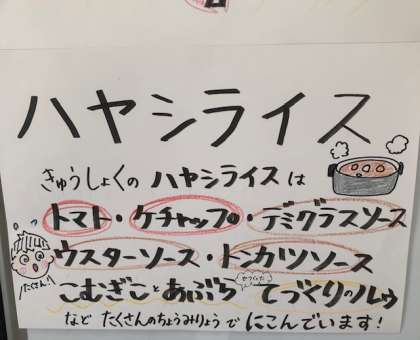 ハヤシライス
きゅうしょくの ハヤシライスは
トマト・ケチャップ・デミグラスソース
ウスターソース・トンカツソース
たくさん!
こむぎことあぶら てづくりのルゥ
など たくさんのちょうみりょうで にこんでいます!